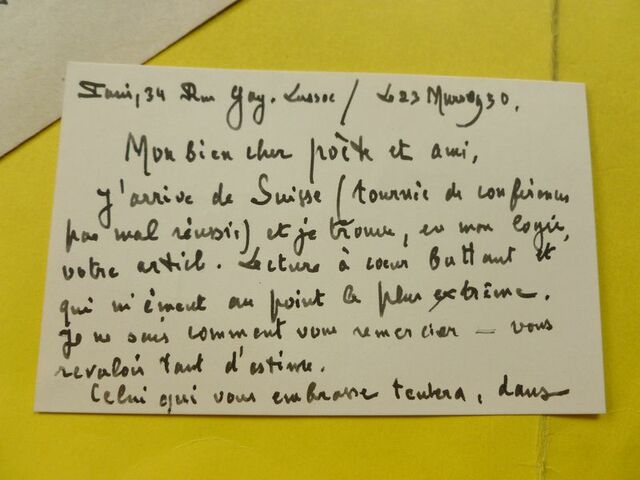 Paris, 34 Rue Gay-Lussac / Le 23 Mars 1930.
Mon bien cher poète et ami,
J'arrive de Suisse (tournée de conférences
pas mal réussie) et je trouve, en mon logis,
votre article. Lecture à cœur battant et
qui m'émeut au point le plus extrême.
Je ne sais comment vous remercier – vous
revaloir tant d'estime.
Celui qui vous embrasse tentera, dans